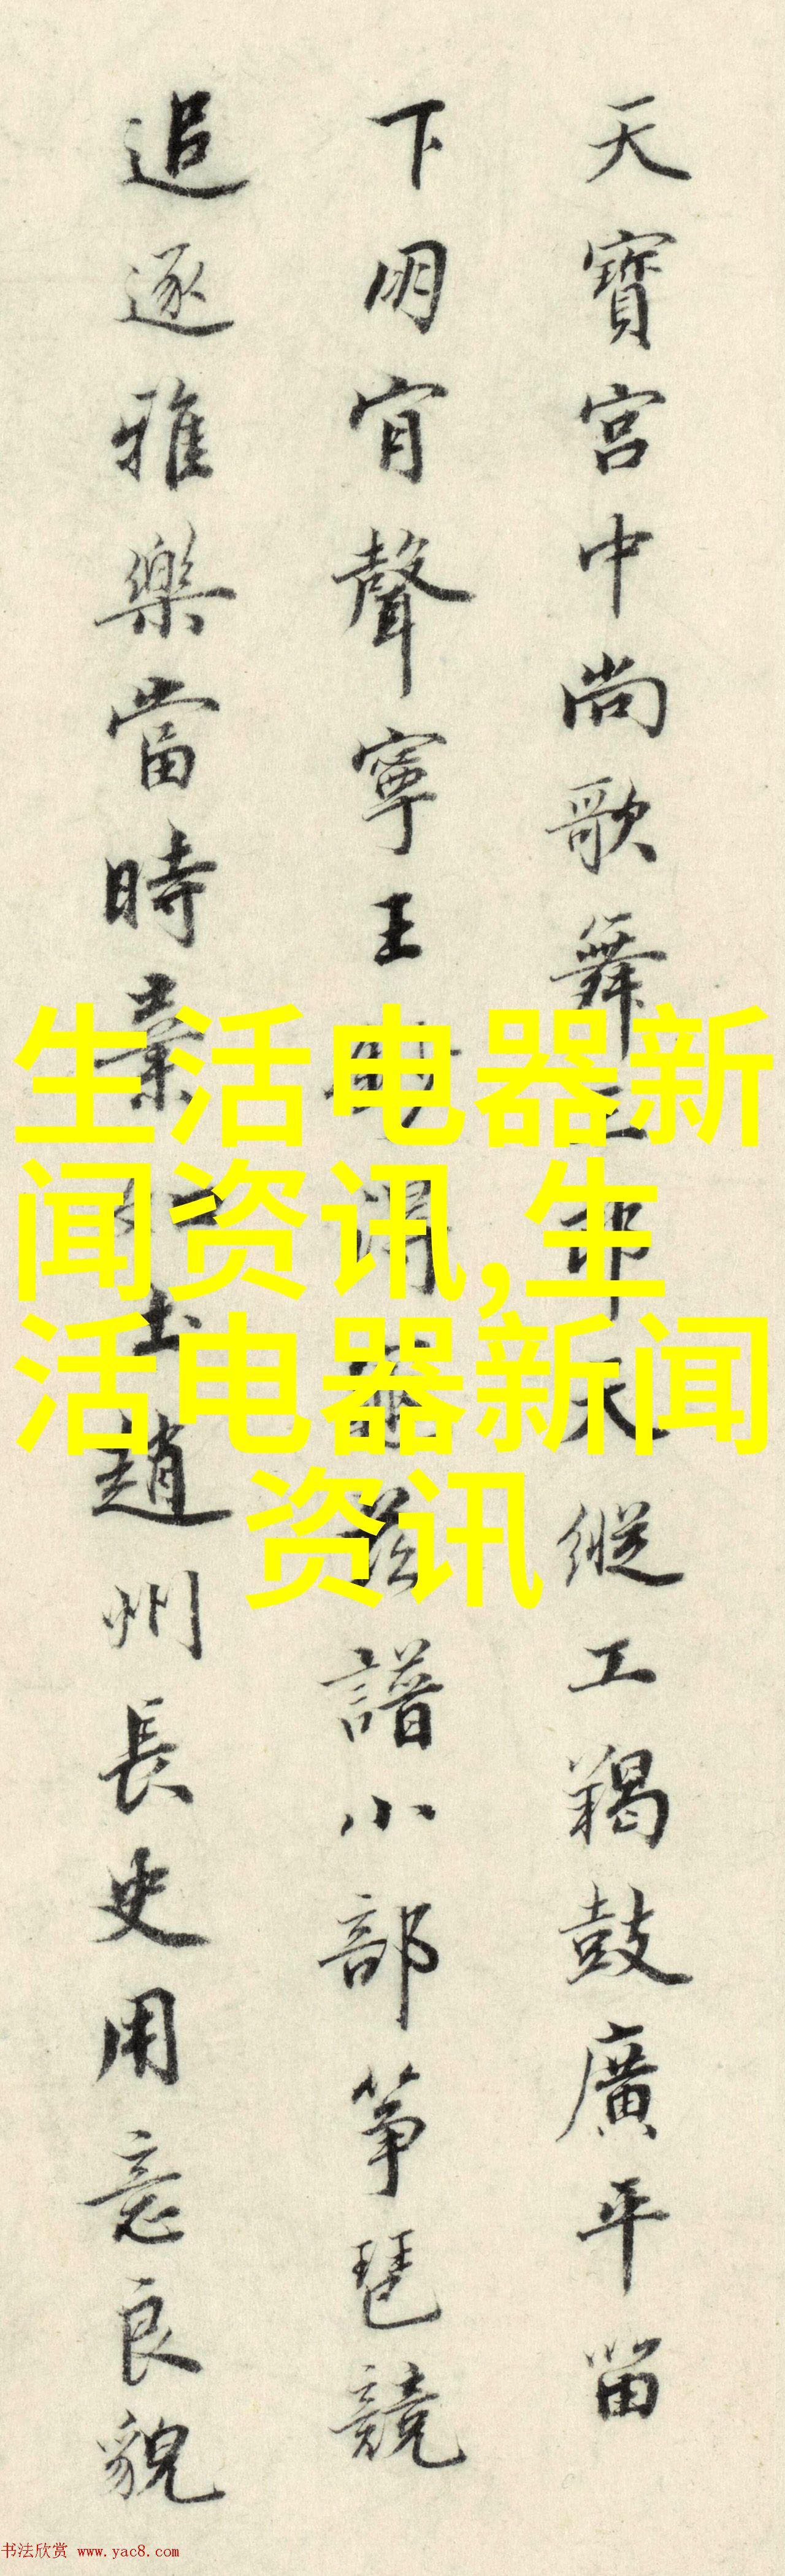 天寶宮中尚歌舞三郎天縱工羯鼓廣平留
下朋肯聲寧王譜小部箏琶競
追逐雅樂當時棄如土趙州長史用意良貌
生活电器新
闻资讯,生
活电器新闻
资讯
书法欣赏 www.yac8.com